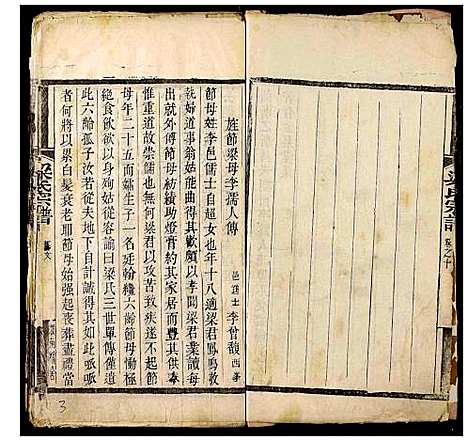 梁氏宗譜
卷之十
旌節梁母李孺人傳
邑進士李曾馥
節母姓李邑儒士自超女也年十八適梁君鳳鳴敦
執婦道事翁姑能曲得其歡顏以孝聞梁君業讀每
出就外傅節母紡績助燈膏約其家居而豐其供
惟重道故崇儒也無何梁君以攻苦致疾遂不起節
母年二十五而孀生子一名廷翰纔六齡節母慟極
絕食飲欲以身殉姑從容諭曰梁氏三世單傳僅遺
此六齡孤子汝若從夫地下自計誠得其如此呱呱
者何將以累白髮衰老耶節母始强起喪葬盡禮當
梁氏宗譜
藝文
3